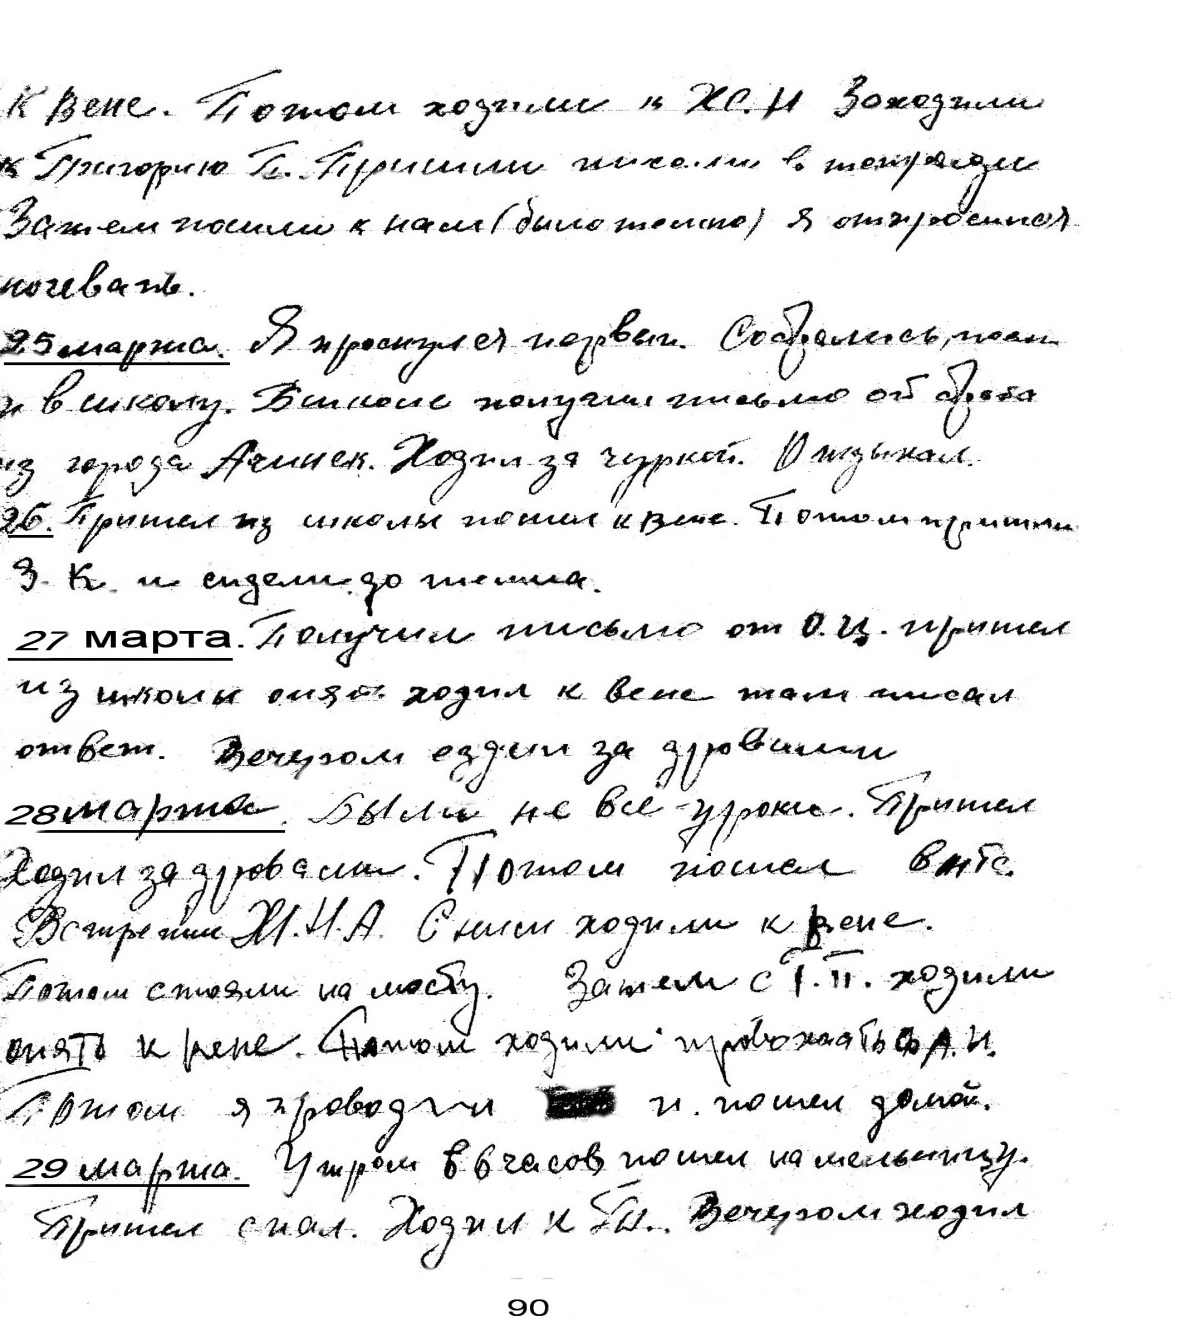 к Вене. Потом ходили к Х.С.Н Заходили
к Григорию П. Пришли писали в тетради
Затем пошли к нам (было темно) Я отпросился
ночевать.
25 марта. Я проснулся первый. Собрались, пош
и в школу. В школе получил письмо от брата
из города Ачинск. Ходил за чуркой. Отдыхал.
26. Пришел из школы пошел к Вене. Потом пришли
З. К. и сидели до темна.
27 марта. Получил письмо от О.Ц. пришел
из школы опять ходил к Вене там писал
ответ. Вечером ездил за дровами
28 марта. Были не все уроки. Пришел
Ходил за дровами. Потом пошел
Встретил Х.И.А. С ними ходили к Вене.
Потом стояли на мосту. Затем с Г.П. ходили
опять к Вене. Потом ходили провожать Ф А.И.
Потом я проводил и пошел домой.
29 марта. Утром в 6 часов пошел на мельницу.
Пришел спал. Ходил к Вечером ходил
90